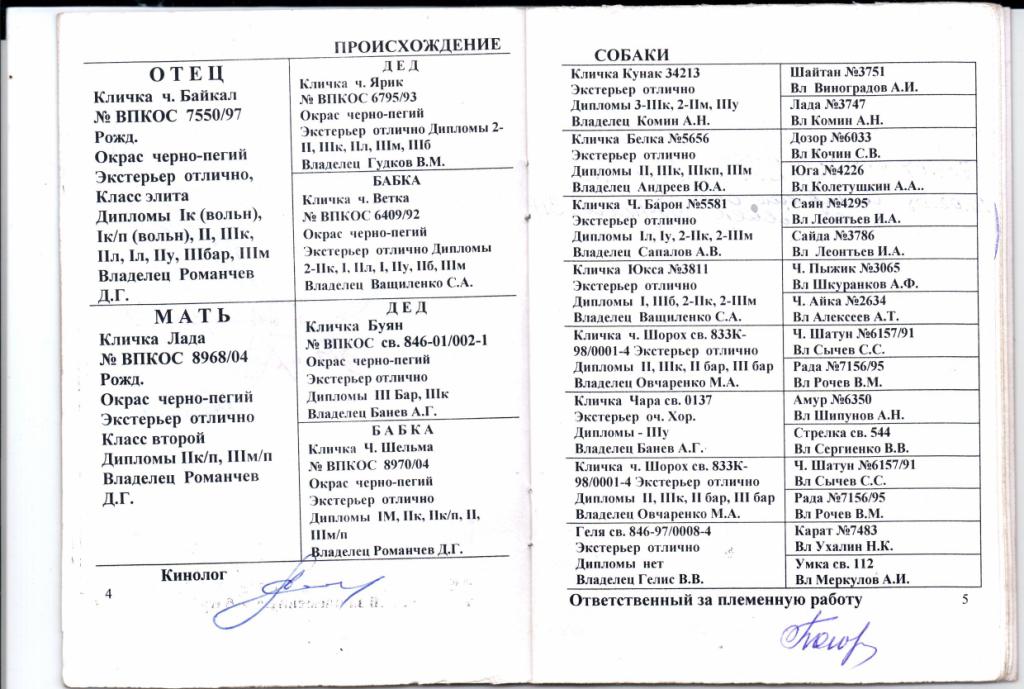 ПРОИСХОЖДЕНИЕ
ОТЕЦ
Кличка ч. Байкал
№ ВПКОС 7550/97
Рожд.
Окрас черно-пегий
Экстерьер отлично,
Класс элита
Дипломы Iк (вольн),
Iк/п (вольн), II, IIIк,
IIл, Iл, IIу, IIIбар, IIIм
Владелец Романчев
Д.Г.
ДЕД
Кличка ч. Ярик
№ ВПКОС 6795/93
Окрас черно-пегий
Экстерьер отлично Дипломы 2-
II, IIIк, IIл, IIIм, IIIб
Владелец Гудков В.М.
БАБКА
Кличка ч. Ветка
№ ВПКОС 6409/92
Окрас черно-пегий
Экстерьер отлично Дипломы
2-IIк, I, IIл, I, IIу, IIб, IIIм
Владелец Ващиленко С.А.
МАТЬ
Кличка Лада
№ ВПКОС 8968/04
Рожд.
Окрас черно-пегий
Экстерьер отлично
Класс второй
Дипломы IIк/п, IIIм/п
Владелец Романчев
Д.Г.
ДЕД
Кличка Буян
№ ВПКОС св. 846-01/002-1
Окрас черно-пегий
Экстерьер отлично
Дипломы III Бар, IIIк
Владелец Банев А.Г.
БАБКА
Кличка Ч. Шельма
№ ВПКОС 8970/04
Окрас черно-пегий
Экстерьер отлично
Дипломы IМ, IIк, IIк/п, II,
IIIм/п
Владелец Романчев Д.Г.
Кинолог
4
СОБАКИ
Кличка Кунак 34213
Экстерьер отлично
Дипломы 3-IIIк, 2-IIм, IIIу
Владелец Комин А.Н.
Шайтан №3751
Вл Виноградов А.И.
Лада №3747
Вл Комин А.Н.
Кличка Белка №5656
Экстерьер отлично
Дипломы II, IIIк, IIIкп, IIIм
Владелец Андреев Ю.А.
Дозор №6033
Вл Кочин С.В.
Юга №4226
Вл Колетушкин А.А..
Кличка Ч. Барон №5581
Экстерьер отлично
Дипломы Iл, Iу, 2-IIк, 2-IIIм
Владелец Сапалов А.В.
Саян №4295
Вл Леонтьев И.А.
Сайда №3786
Вл Леонтьев И.А.
Кличка Юкса №3811
Экстерьер отлично
Дипломы I, IIIб, 2-IIк, 2-IIIм
Владелец Ващиленко С.А.
Ч. Пыжик №3065
Вл Шкуранков А.Ф.
Ч. Айка №2634
Вл Алексеев А.Т.
Кличка ч. Шорох св. 833К-
98/0001-4 Экстерьер отлично
Дипломы II, IIIк, II бар, III бар
Владелец Овчаренко М.А.
Ч. Шатун №6157/91
Вл Сычев С.С.
Рада №7156/95
Вл Рочев В.М.
Кличка Чара св. 0137
Экстерьер оч. Хор.
Дипломы - IIIу
Владелец Банев А.Г.
Амур №6350
Вл Шипунов А.Н.
Стрелка св. 544
Вл Сергиенко В.В.
Кличка ч. Шорох св. 833К-
98/0001-4 Экстерьер отлично
Дипломы II, IIIк, II бар, III бар
Владелец Овчаренко М.А.
Ч. Шатун №6157/91
Вл Сычев С.С.
Рада №7156/95
Вл Рочев В.М.
Геля св. 846-97/0008-4
Экстерьер отлично
Дипломы нет
Владелец Гелис В.В.
Карат №7483
Вл Ухалин Н.К.
Умка св. 112
Вл Меркулов А.И.
Ответственный за племенную работу
5